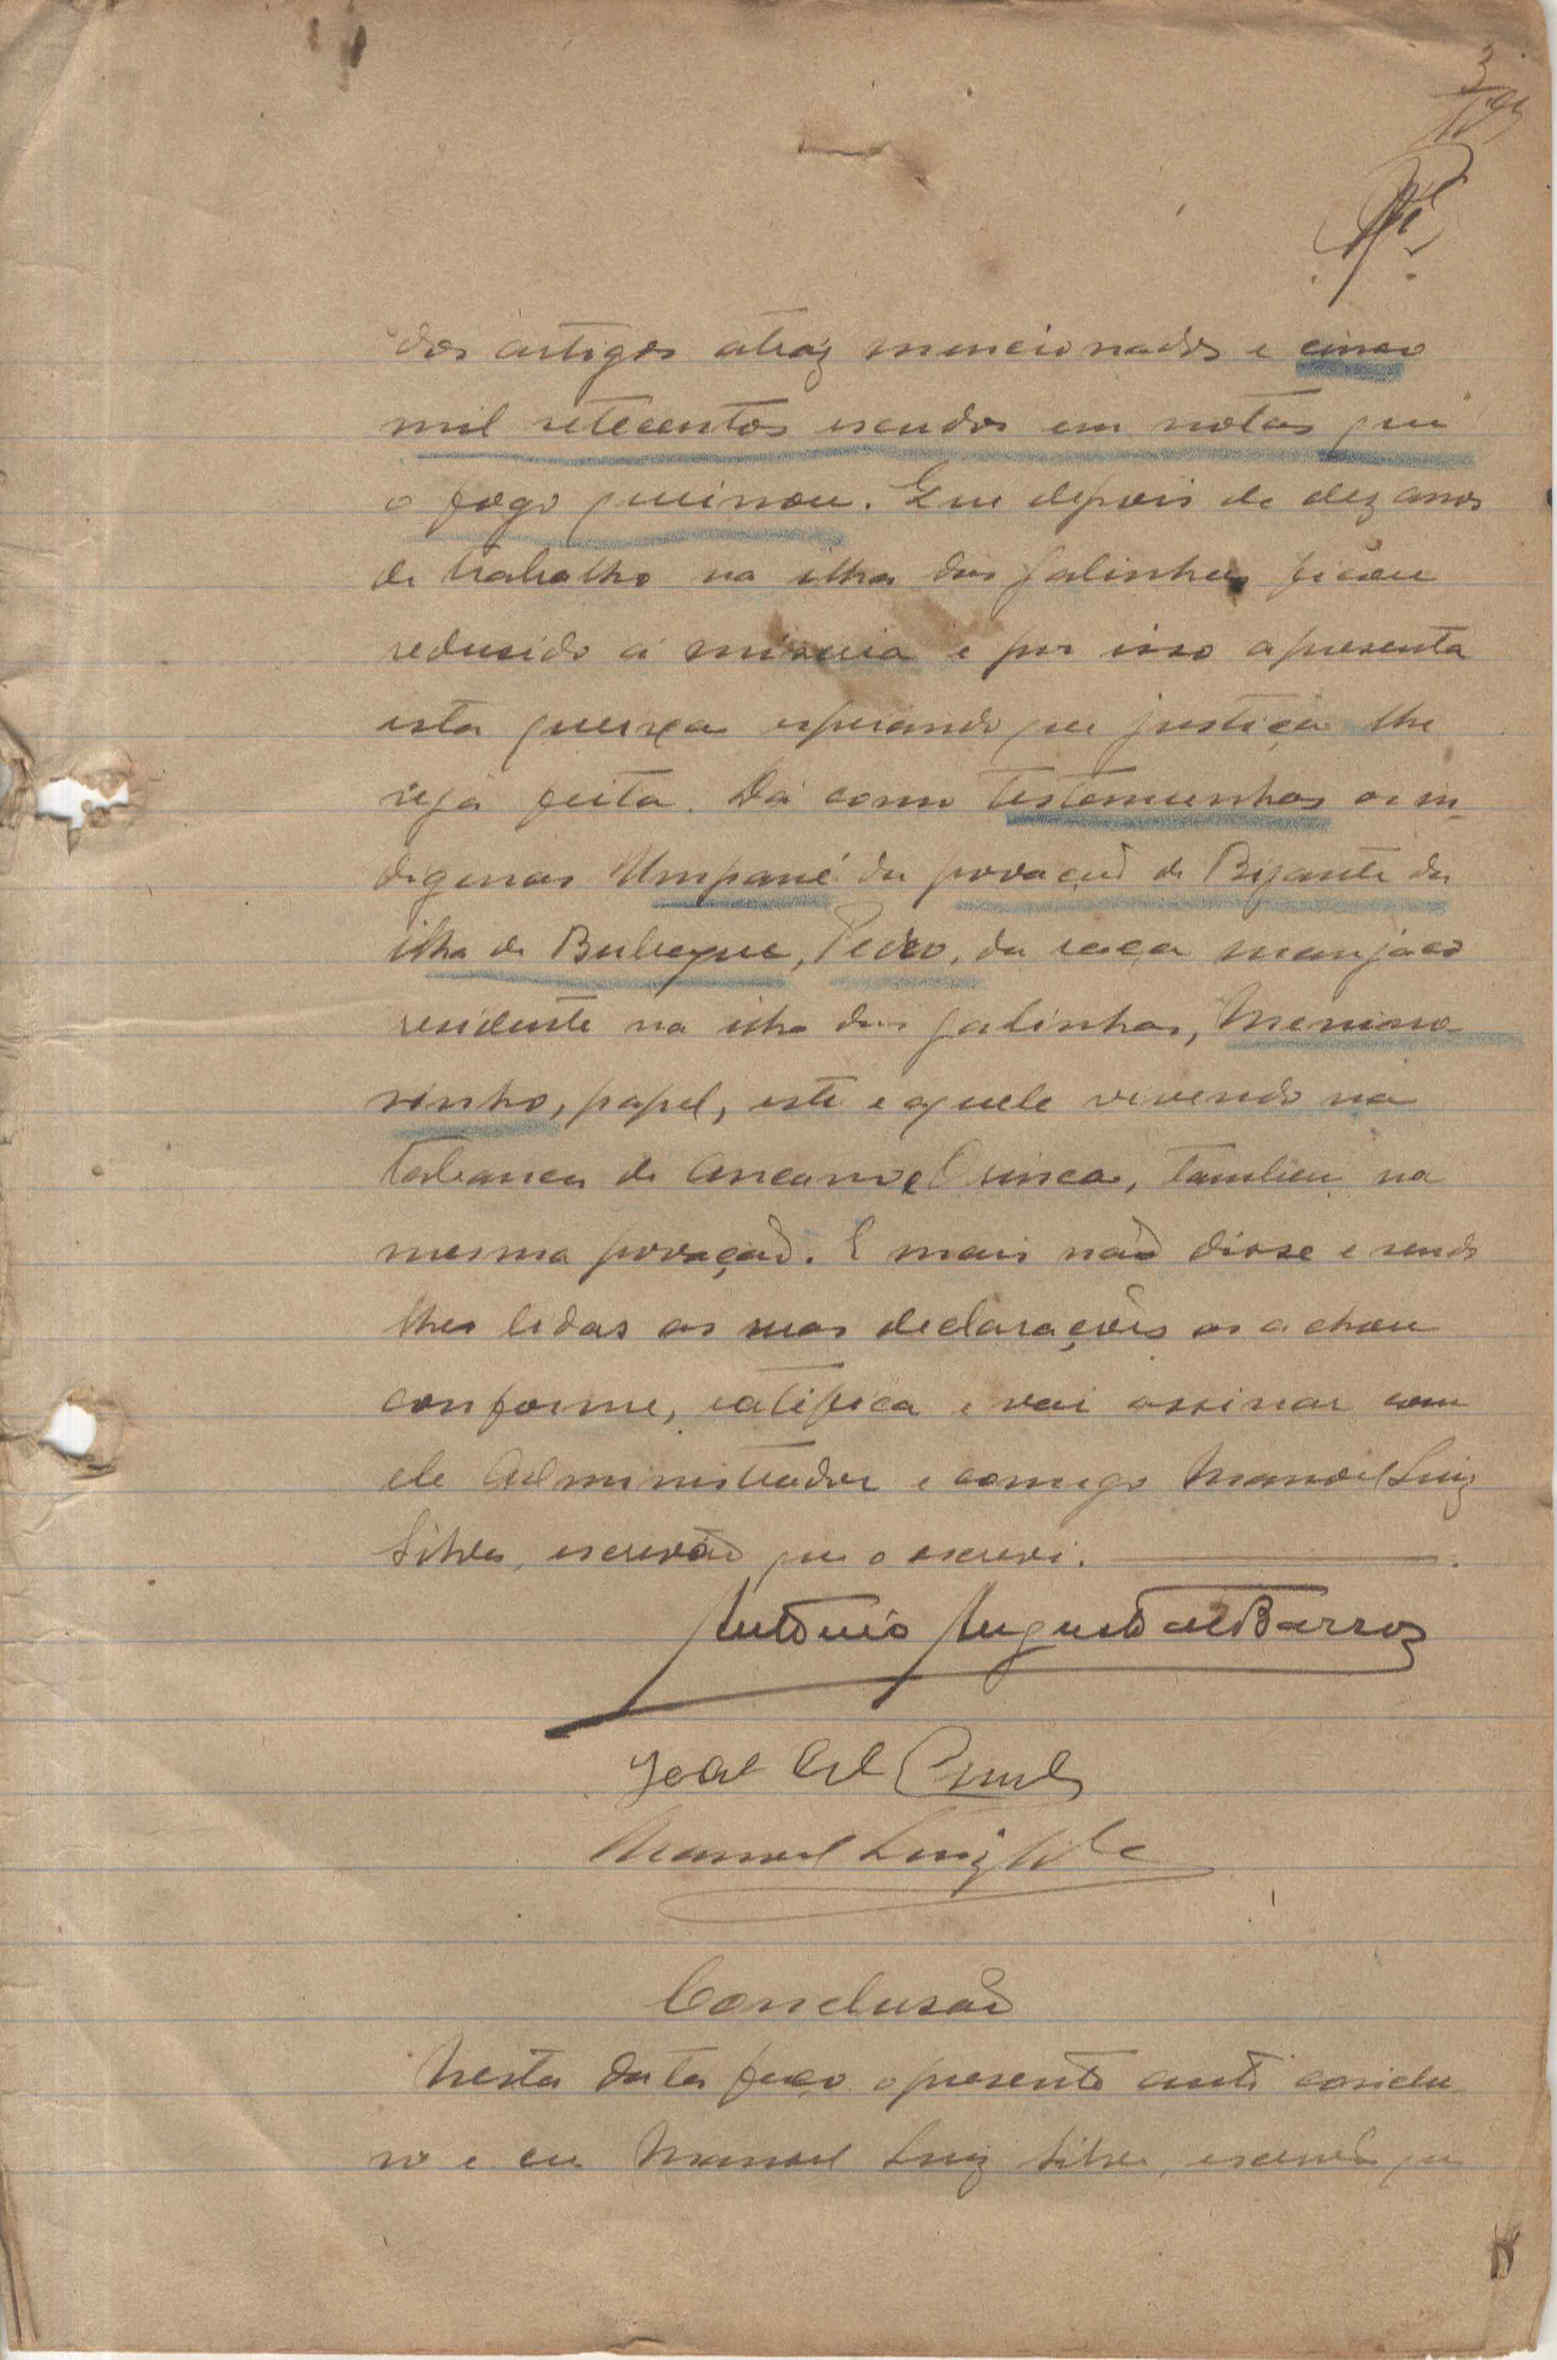 3
dos artigos atraz mencionados e cinco
mil setecentos escudos em notas que
o fogo queimou. Que depois de dez anos
de trabalho na ilha das galinhas ficou
reduzido á miseria e por isso apresenta
esta queixa esperando que justiça lhe
seja feita. Dá como testemunhas os in-
digenas Umpané da povoação de Bijante da
ilha de Bubaque, Pedro, da raça manjaco
residente na ilha das galinhas, Menino
, papel, este e aquele vivendo na
tabanca de Ancano e Quinca, tambem na
mesma povoação. E mais não disse e sendo
lhes lidas as suas declarações as achou
conforme, ratifica e vai assinar com
ele Administrador e comigo Manoel Luiz
Silva, escrivão que o escrevi.
António Augusto de Barros
Manoel Luiz Silva
Conclusão
Nesta data faço o presente auto conclu
so e eu Manoel Luiz Silva, escrivão que